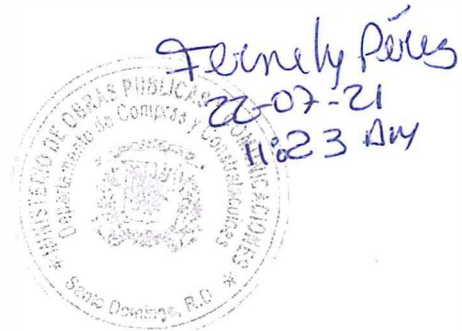 Fernely Pérez
22-07-21
11:23 AM
MINISTERIO DE OBRAS PUBLICAS Y COMUNICACIONES
Departamento de Compras y Contrataciones
Santo Domingo, R.D